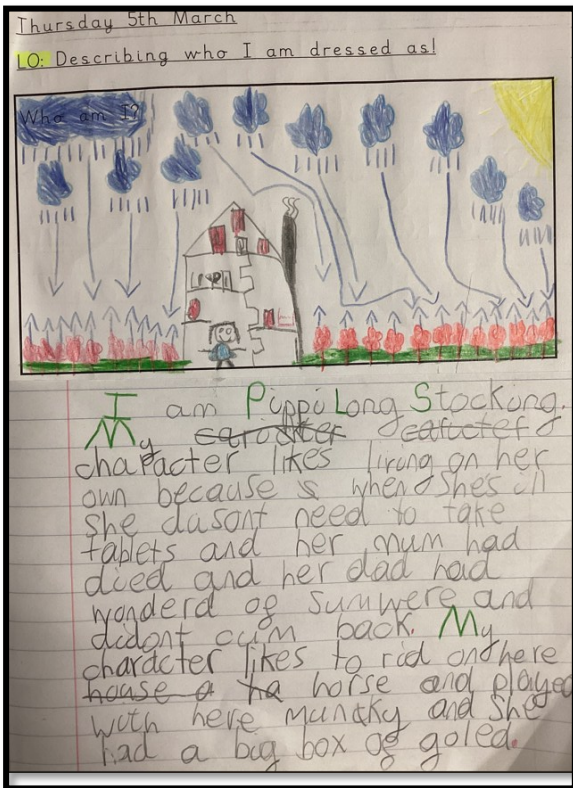 Thursday 5th March
LO: Describing who I am dressed as!
Who am I?
I am Pippi Long Stocking.
My carockter caructer
character likes living on her
own because is when she's ill
she dasont need to take
tablets and her mum had
died and her dad had
wonderd of sumwere and
didont cum back. My
character likes to rid on here
house a ha horse and played
with here muncky and she
had a big box of goled.